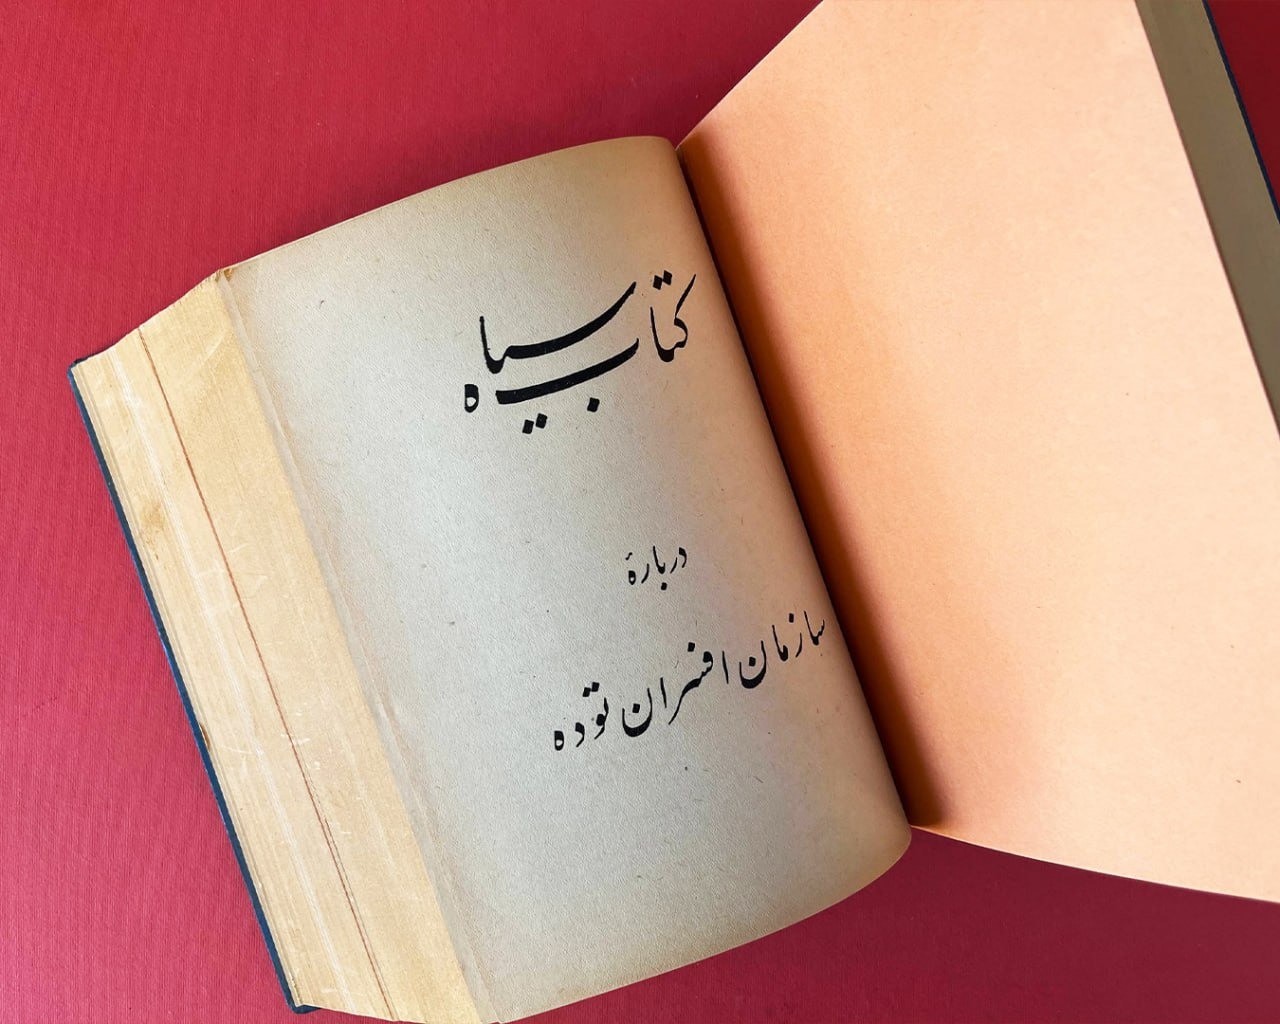 کتاب سیاه
دربارهٔ
سازمان افسران توده